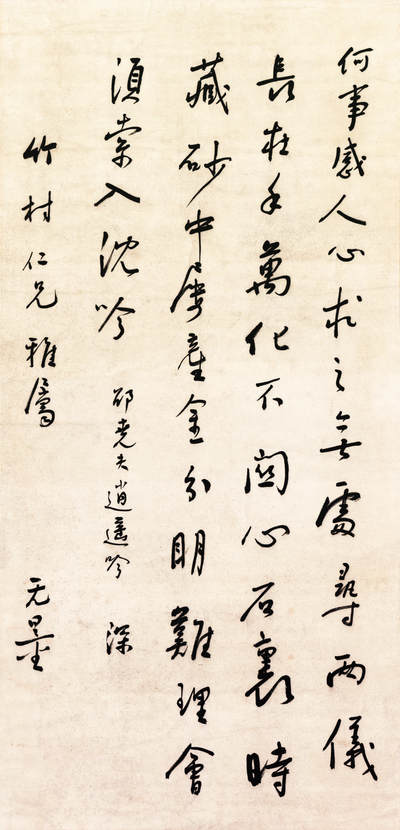 何事感人心求之無處尋兩儀
長在手萬化不關心石裏時
藏砂中屢產金分明難理會
須索入沈吟 邵堯夫逍遙吟 深
竹村仁兄雅屬 无量